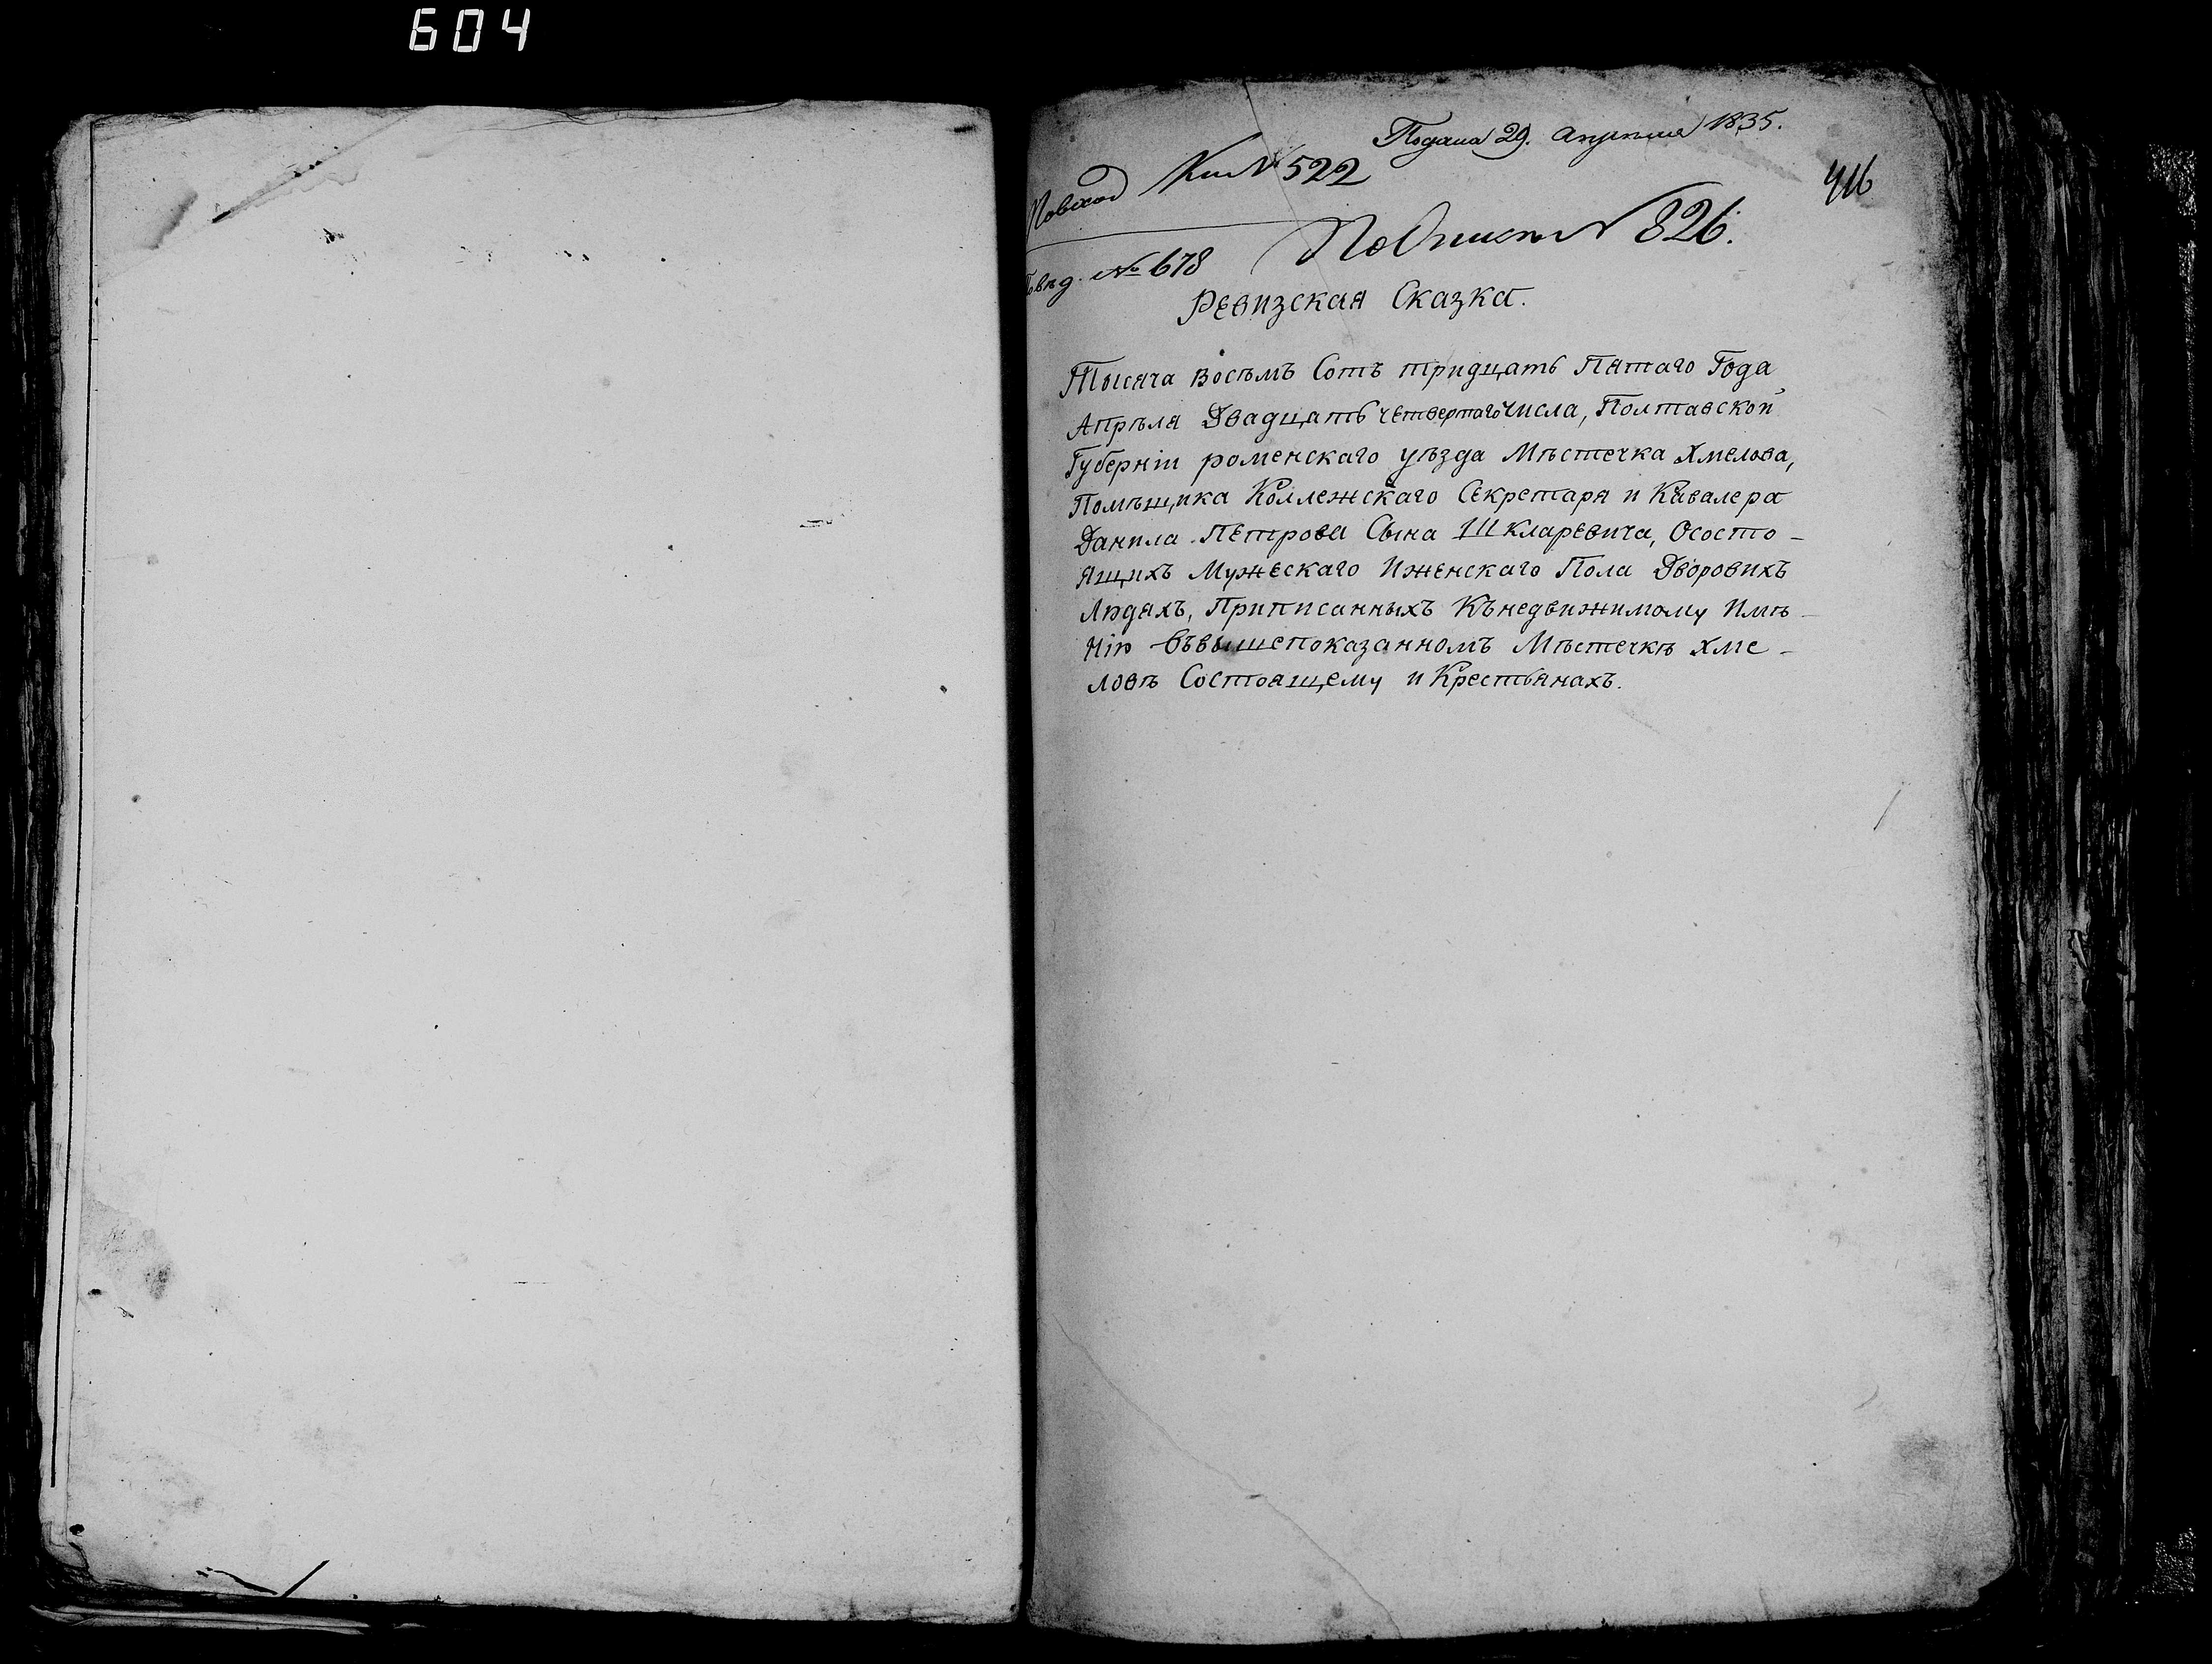 604
Подана 29. Апреля 1835.
Повход Кн № 522
416
По Описи № 826.
Повѣд. № 678
Ревизская Сказка.
Тысяча Восѣмъ Сотъ тридцать Пятаго Года
Апрѣля Двадцать четвертаго числа, Полтавской
Губерніи роменскаго уѣзда Мѣстечка Хмелова,
Помѣщика Коллежскаго Секретаря и Кавалера
Данила Петрова Сына Шкларевича, Осостo-
ящихъ Мужескаго Иженскаго Пола Дворовихъ
Людяхъ, Приписанныхъ Кънедвижимому Имѣ-
нію Въвышепоказанномъ Мѣстечкѣ Хме-
ловѣ Состоящему и Крестьянахъ.